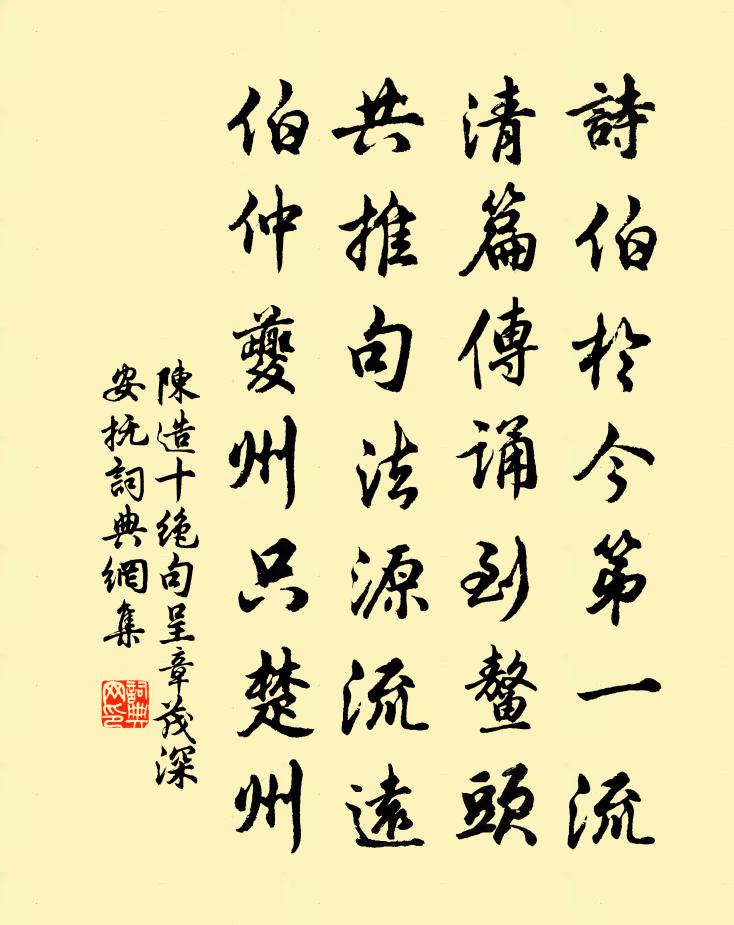 詩伯於今第一流
清篇傳誦到鰲頭
共推句法源流遠
伯仲夔州只楚州
陳造十絶句呈章茂深
安抚詞典網集
詞典
网印